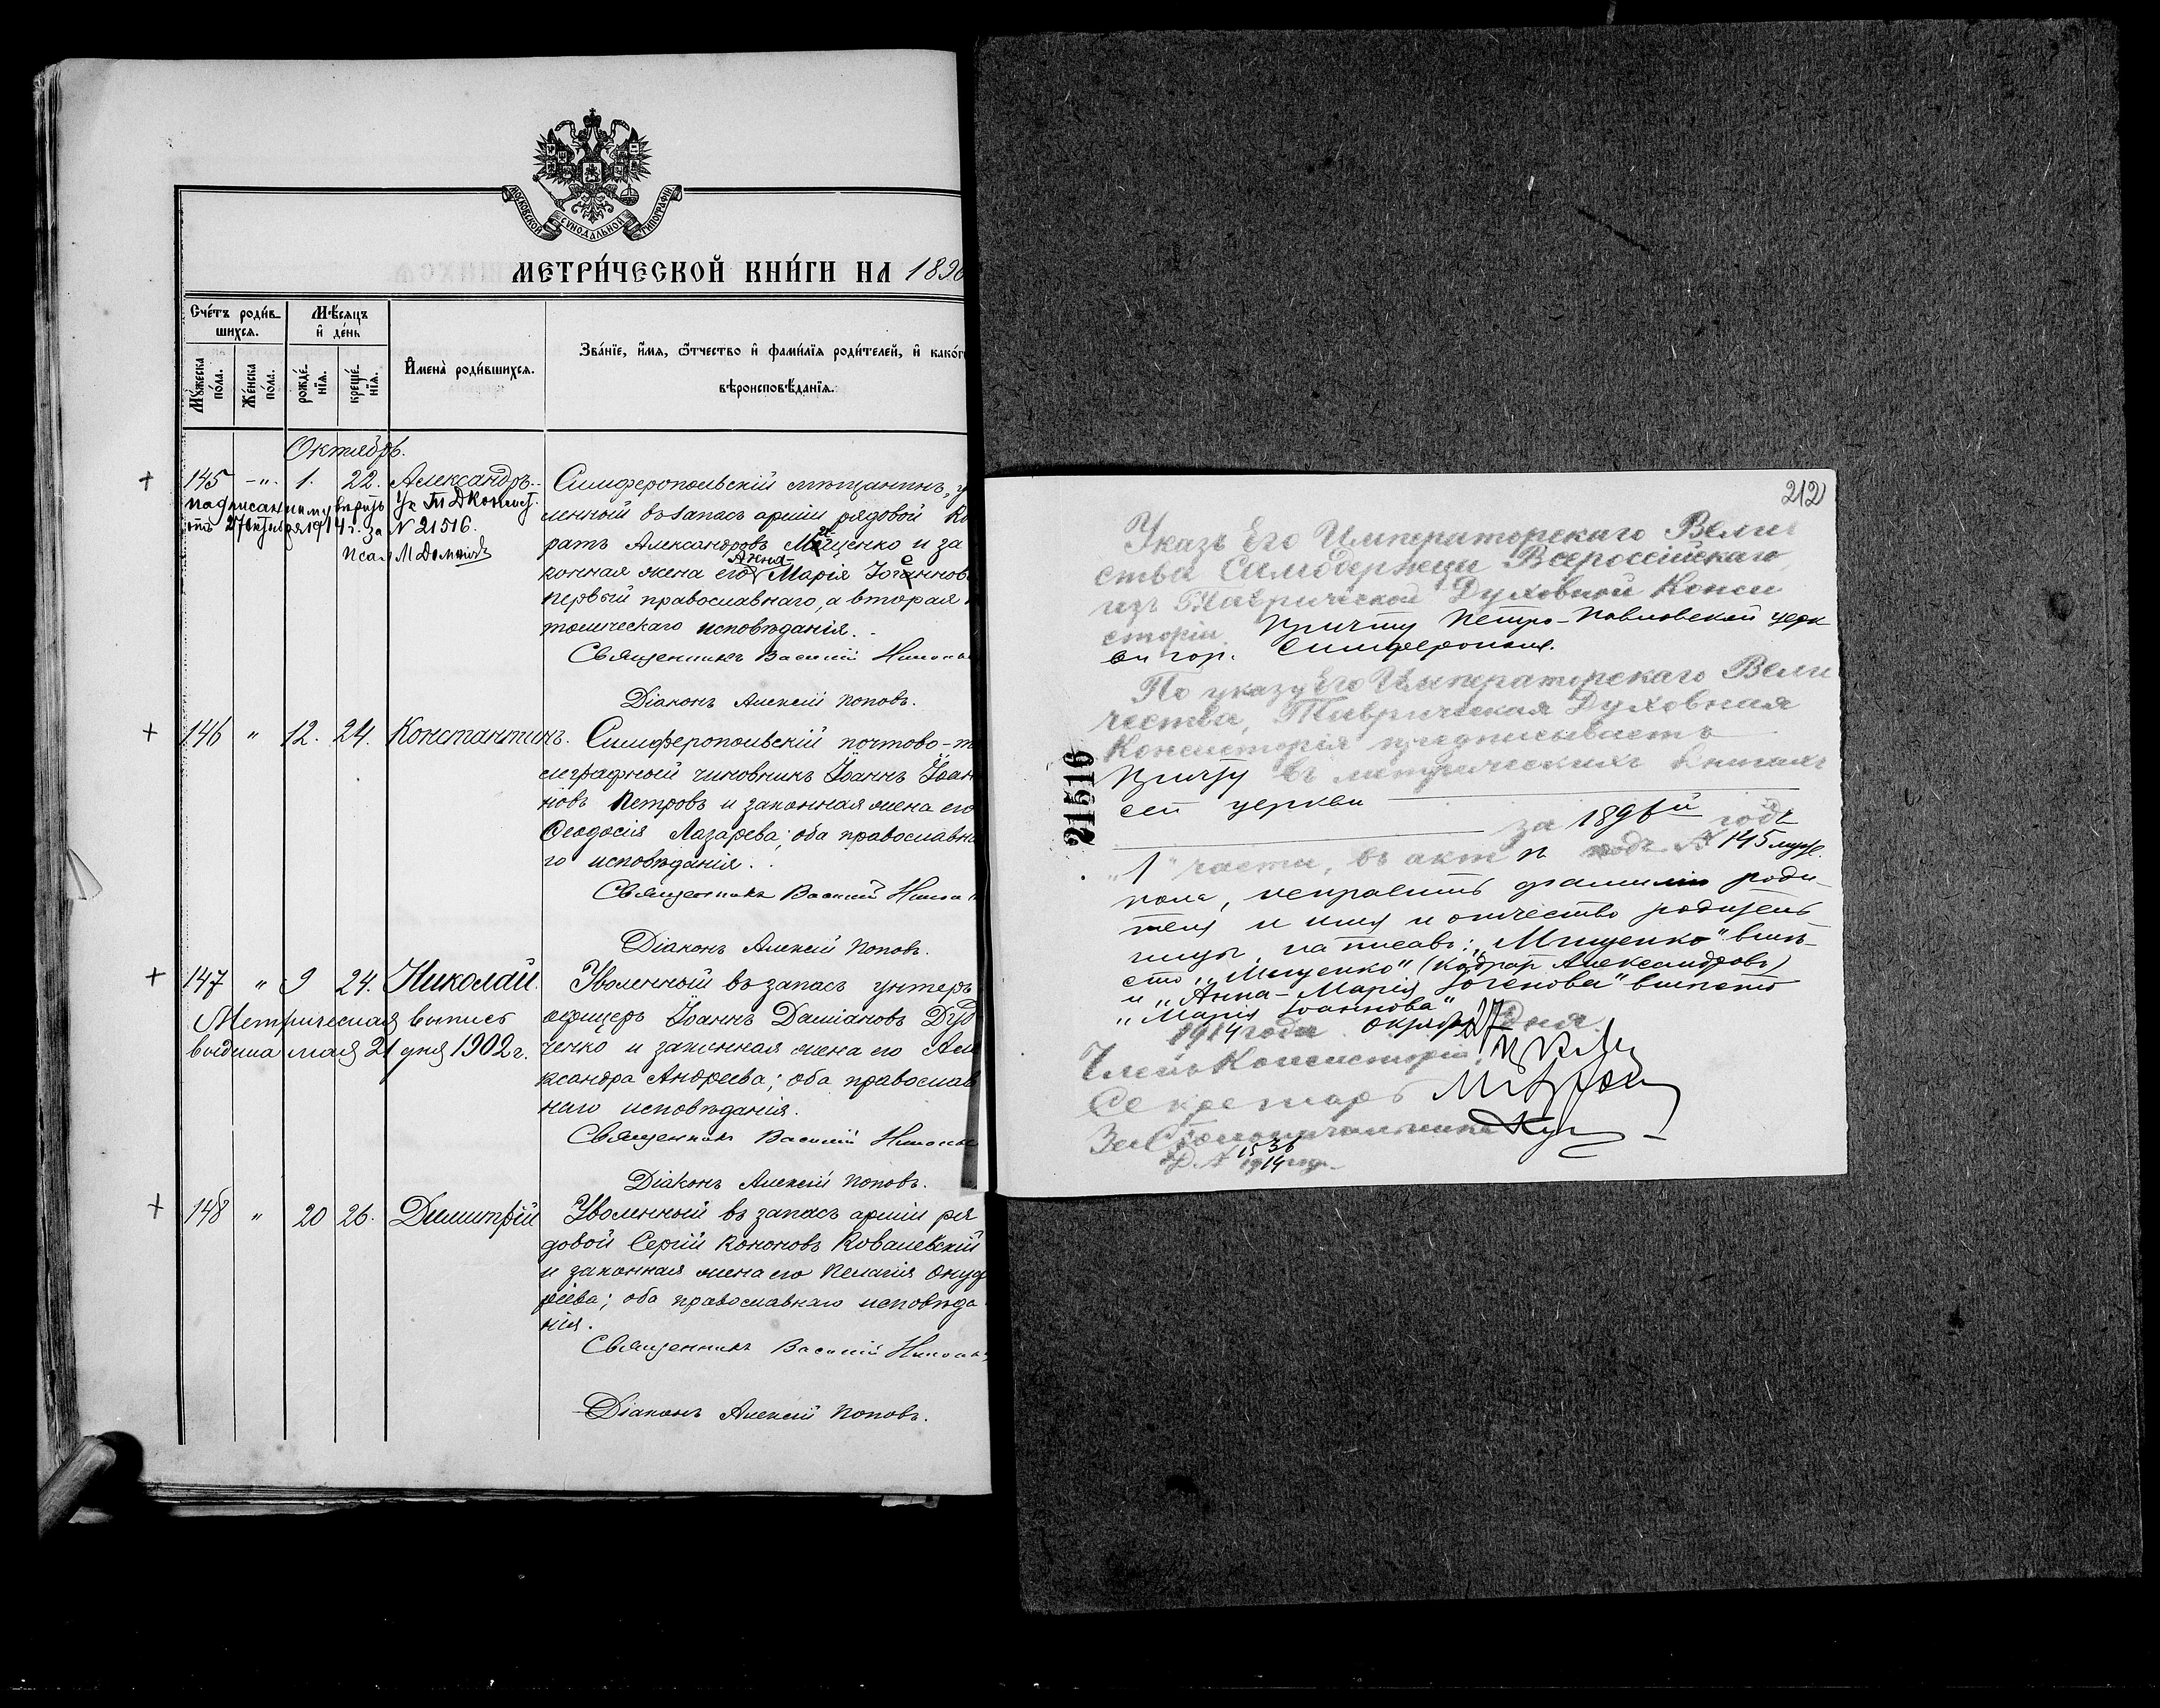 МОСКОВСКОЙ СУНОДАЛЬНОЙ ТИПОГРАФІИ
МЕТРИ́ЧЕСКОЙ КНИ́ГИ НА 1896
Сче́тъ роди́в-
шихсѧ.
Мѣ́сѧцъ
и҆ де́нь
Мꙋ́жеска
по́ла.
Же́нска
по́ла.
рожде́-
нїѧ.
креще́-
нїѧ.
И҆мена̀ роди́вшихсѧ.
Зва́нїе, и҆́мѧ, ѻ҆́тчество и҆ фами́лїѧ роди́телей, и҆ како́г
вѣроисповѣ́данїѧ.
Октябрь.
+ 145 -"- 1. 22. Александръ.
Симферопольскій мѣщанинъ, у
ленный въ запасъ арміи рядовой Ко
ратъ Александровъ Мищенко и за
Анна-
конная жена его Марія Іогеннов
первый православнаго, а вторая
толическаго исповѣданія.
Священникъ Василій
Діаконъ Алексій Поповъ.
Ук. Т Д Конист.
отъ 27 октября 1914 г. за N 21516.
Псал М
+ 146 " 12. 24. Константинъ.
Симферопольскій почтово-те
леграфный чиновникъ Іоаннъ Іоан
новъ Петровъ и законная жена его
Ѳеодосія Лазарева; оба православна
го исповѣданія.
Священникъ Василій
Діаконъ Алексій Поповъ.
+ 147 " 9 24. Николай.
Метрическая выпись
выдана мая 21 дня 1902 г.
Уволенный въ запасъ унтеръ
офицеръ Іоаннъ Даміановъ Дуд
ченко и законная жена его Але
ксандра Андреева; оба православ
наго исповѣданія.
Священникъ Василій
Діаконъ Алексій Поповъ.
+ 148 " 20 26. Димитрій
Уволенный въ запасъ арміи ря
довой Сергій Кононовъ Ковалевскій
и законная жена его Пелагія Онуф
ріева; оба православнаго исповѣда
нія.
Священникъ Василій
Діаконъ Алексій Поповъ.
212
Указъ Его Императорскаго Вели
ства Самодержца Всероссійскаго,
изъ Таврической Духовной Конси
сторіи Причту Петро-Павловской церк
ви гор. Симферополя.
По указу Его Императорскаго Вели
чества, Таврическая Духовная
Консисторія предписываетъ
Причту въ метрическихъ книгахъ
сей церкви
за 1896 й годъ
"1" части, въ актѣ подъ № 145 муж.
пола, исправить фамилію роди-
теля и имя и отчество родитель
ницы, написавъ: "Мищенко" вмѣ-
сто "Мещенко" (Кодратъ Александровъ)
и "Анна-Марія Іогенова" вмѣсто
"Марія Іоаннова"
1914 года октября 27 дня.
Членъ Консисторіи,
Секретарь
За Столоначальника
Д. № 1536
1914 год.
21516